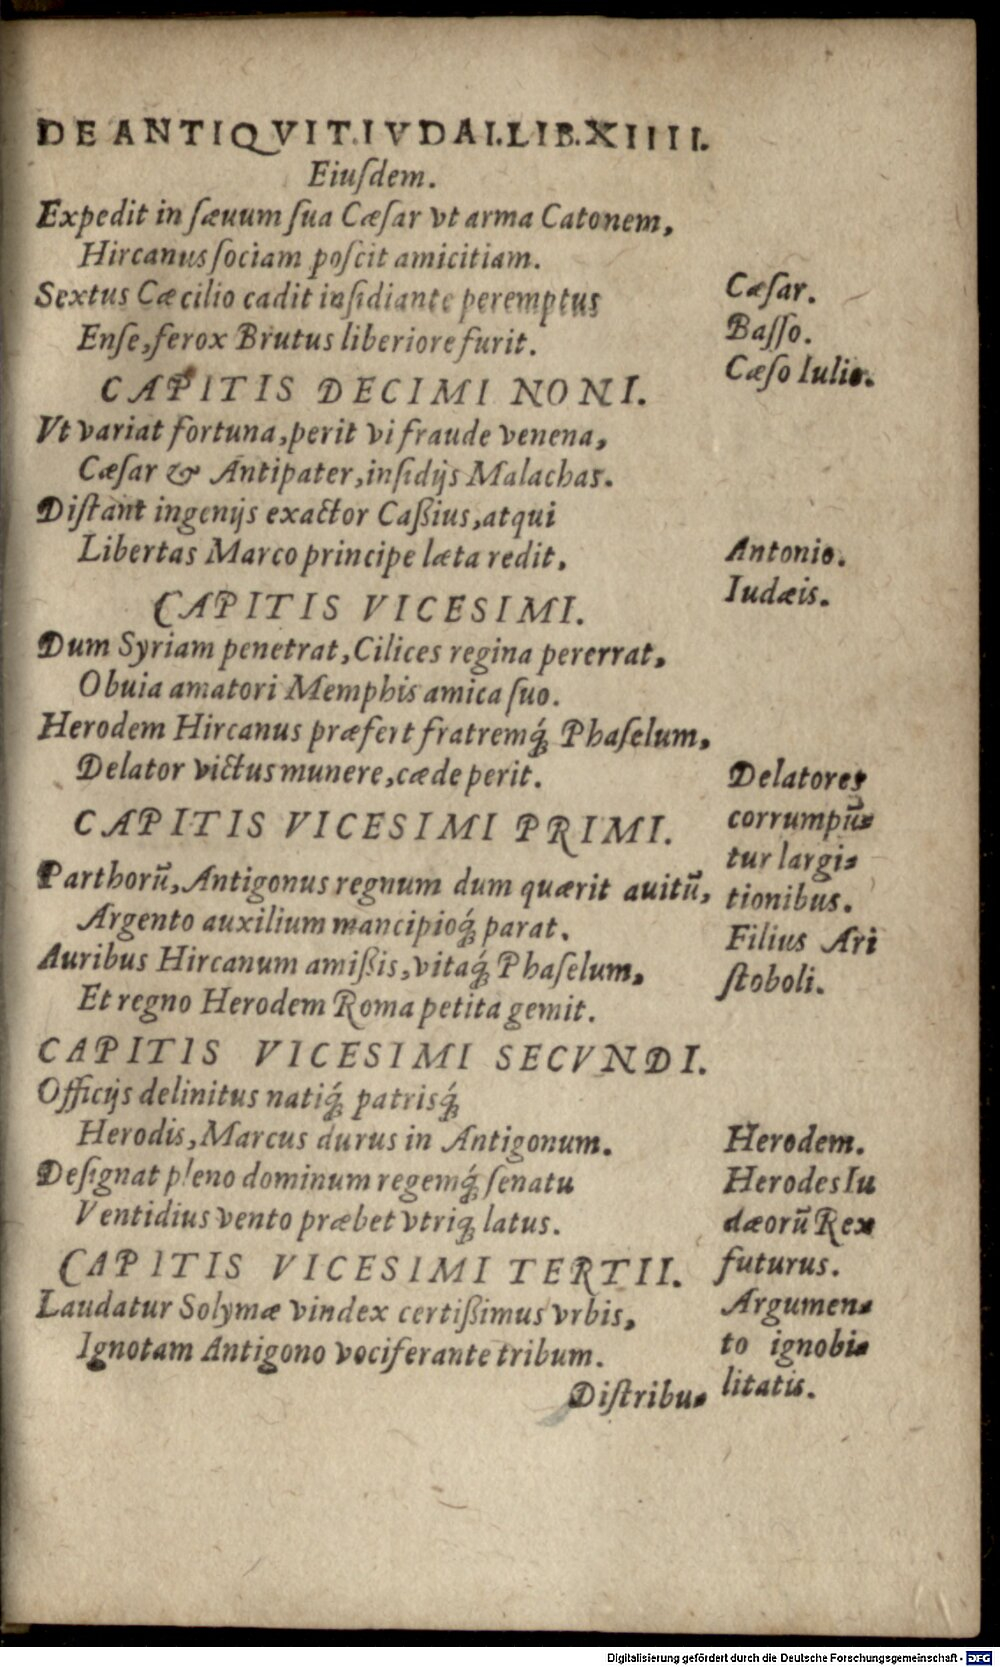 DE ANTIQVIT. IVDAI. LIB. XIIII.
Eiuſdem.
Expedit in ſæuum ſua Cæſar vt arma Catonem,
Hircanus ſociam poſcit amicitiam.
Sextus Cæcilio cadit inſidiante peremptus
Enſe, ferox Brutus liberiore furit.
Cæſar.
Baſſo.
Cæſo Iulio.
CAPITIS DECIMI NONI.
Vt variat fortuna, perit vi fraude venena,
Cæſar & Antipater, inſidijs Malachas.
Diſtant ingenijs exactor Caßius, atqui
Libertas Marco principe læta redit.
Antonio.
Iudæis.
CAPITIS VICESIMI.
Dum Syriam penetrat, Cilices regina pererrat,
Obuia amatori Memphis amica ſuo.
Herodem Hircanus præfert fratremq́; Phaſelum,
Delator victus munere, cæde perit.
Delatores
corrumpũ-
tur largi-
tionibus.
CAPITIS VICESIMI PRIMI.
Parthorũ, Antigonus regnum dum quærit auitũ,
Argento auxilium mancipioq́; parat.
Auribus Hircanum amißis, vitaq́; Phaſelum,
Et regno Herodem Roma petita gemit.
Filius Ari
ſtoboli.
CAPITIS VICESIMI SECVNDI.
Officijs delinitus natiq́; patrisq́;
Herodis, Marcus durus in Antigonum.
Deſignat pleno dominum regemq́; ſenatu
Ventidius vento præbet vtriq; latus.
Herodem.
Herodes Iu
dæorũ Rex
futurus.
CAPITIS VICESIMI TERTII.
Laudatur Solymæ vindex certißimus vrbis,
Ignotam Antigono vociferante tribum.
Argumen-
to ignobi-
litatis.
Diſtribu-
Digitalisierung gefördert durch die Deutsche Forschungsgemeinschaft - DFG